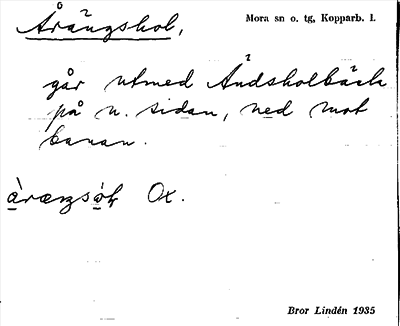 Årängshol, Mora sn o. tg, Kopparb. l.
går utmed Åndsholbäck
på n. sidan, ned mot
banan.
Ox.
Bror Lindén 1935